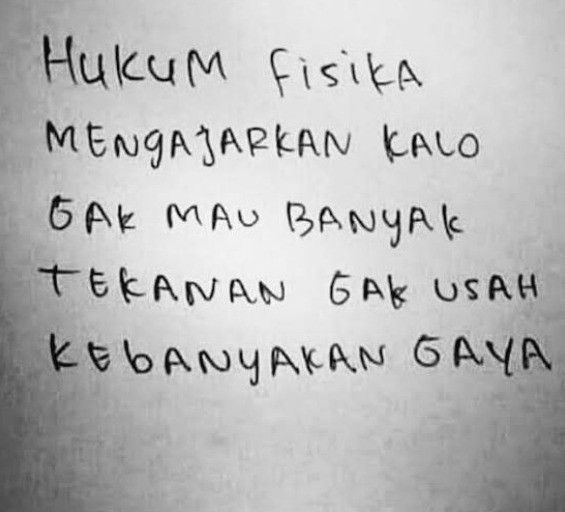 Hukum fisika
MENGAJARKAN KALO
GAK MAU BANYAK
TEKANAN GAK USAH
KEBANYAKAN GAYA